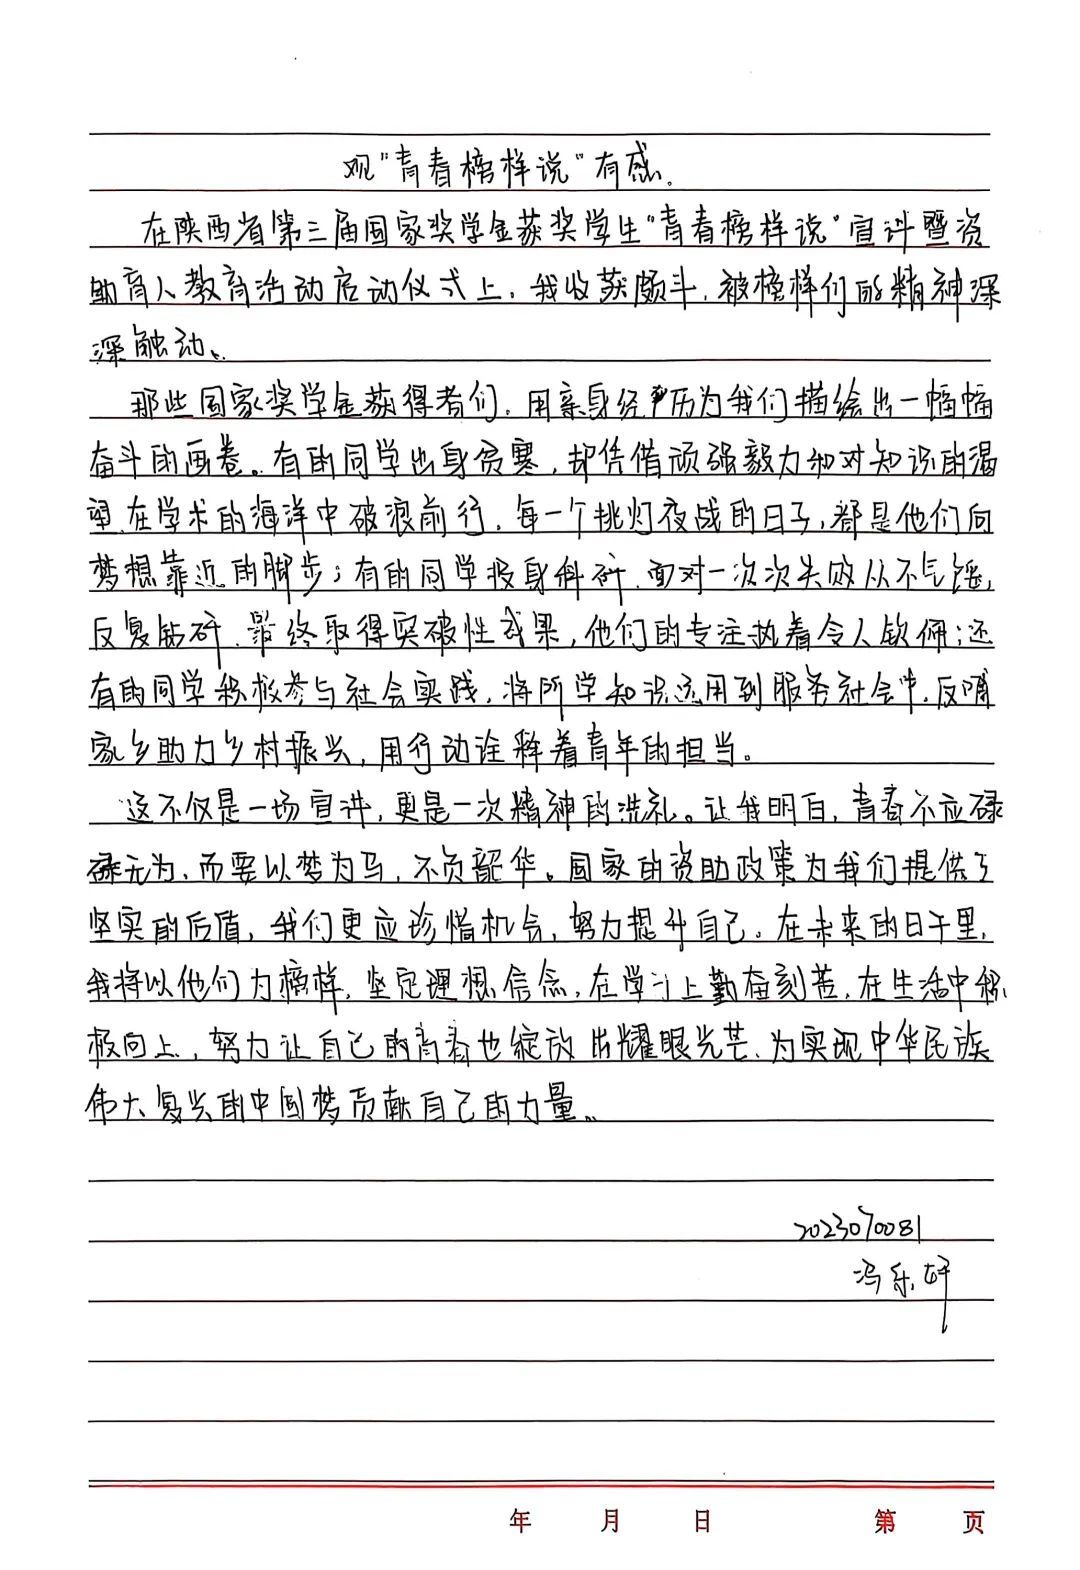 观“青春榜样说”有感。
在陕西省第三届国家奖学金获奖学生“青春榜样说”宣讲暨资
助育人教育活动启动仪式上，我收获颇丰，被榜样们的精神深
深触动。
那些国家奖学金获得者们，用亲身经历为我们描绘出一幅幅
奋斗的画卷。有的同学出身贫寒，却凭借顽强毅力和对知识的渴
望，在学术的海洋中破浪前行，每一个挑灯夜战的日子，都是他们向
梦想靠近的脚步；有的同学投身科研，面对一次次失败从不气馁，
反复钻研，最终取得突破性成果，他们的专注执着令人钦佩；还
有的同学积极参与社会实践，将所学知识运用到服务社会中，反哺
家乡助力乡村振兴，用行动诠释着青年的担当。
这不仅是一场宣讲，更是一次精神的洗礼。让我明白，青春不应碌
碌无为，而要以梦为马，不负韶华。国家的资助政策为我们提供了
坚实的后盾，我们更应珍惜机会，努力提升自己。在未来的日子里，
我将以他们为榜样，坚定理想信念，在学习上勤奋刻苦，在生活中积
极向上，努力让自己的青春也绽放出耀眼光芒，为实现中华民族
伟大复兴的中国梦贡献自己的力量。
2023070081
冯乐轩
年 月 日 第 页